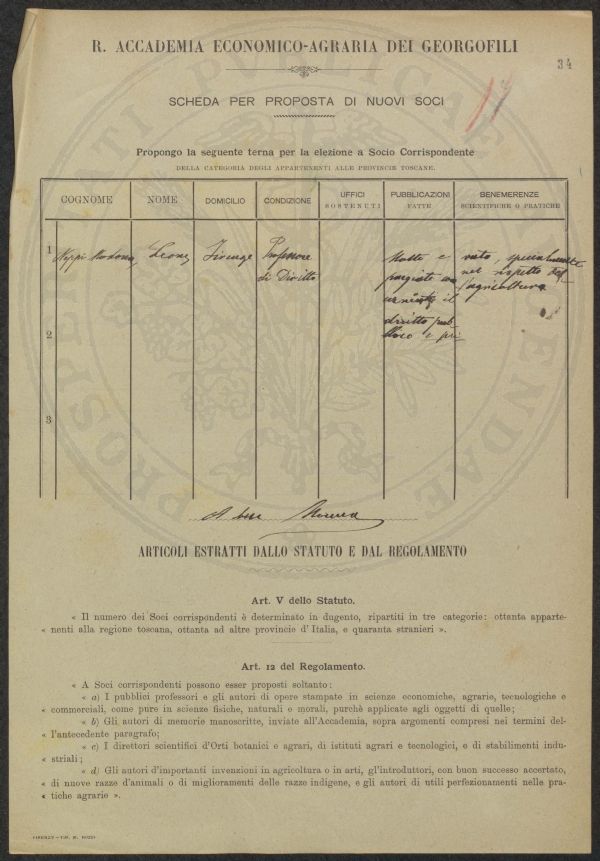 R. ACCADEMIA ECONOMICO-AGRARIA DEI GEORGOFILI
34
SCHEDA PER PROPOSTA DI NUOVI SOCI
Propongo la seguente terna per la elezione a Socio Corrispondente
DELLA CATEGORIA DEGLI APPARTENENTI ALLE PROVINCIE TOSCANE.
COGNOME NOME DOMICILIO CONDIZIONE UFFICI SOSTENUTI PUBBLICAZIONI FATTE BENEMERENZE SCIENTIFICHE O PRATICHE
1 Neppi Modona, Leone, Firenze Professore di Diritto
Molte e pregiate con
il
diritto pub
blico e pri
vato, specialmente
nel rispetto del
l'agricoltura
2
3
A. 
ARTICOLI ESTRATTI DALLO STATUTO E DAL REGOLAMENTO
Art. V dello Statuto.
« Il numero dei Soci corrispondenti è determinato in dugento, ripartiti in tre categorie: ottanta apparte-
« nenti alla regione toscana, ottanta ad altre provincie d'Italia, e quaranta stranieri ».
Art. 12 del Regolamento.
« A Soci corrispondenti possono esser proposti soltanto:
« a) I pubblici professori e gli autori di opere stampate in scienze economiche, agrarie, tecnologiche e
« commerciali, come pure in scienze fisiche, naturali e morali, purchè applicate agli oggetti di quelle;
« b) Gli autori di memorie manoscritte, inviate all'Accademia, sopra argomenti compresi nei termini del-
« l'antecedente paragrafo;
« c) I direttori scientifici d'Orti botanici e agrari, di istituti agrari e tecnologici, e di stabilimenti indu-
« striali;
« d) Gli autori d'importanti invenzioni in agricoltura o in arti, gl'introduttori, con buon successo accertato,
« di nuove razze d'animali o di miglioramenti delle razze indigene, e gli autori di utili perfezionamenti nelle pra-
« tiche agrarie ».
FIRENZE - TIP. M. RICCI